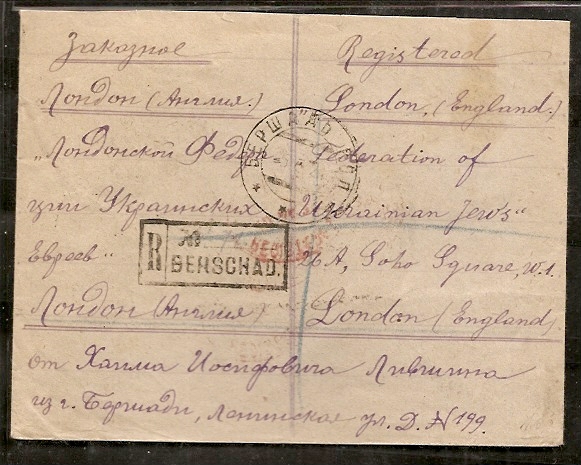 Заказное
Registered
Лондон (Англия.)
London, (England.)
"Лондонской Федера
Federation of
ции Украинских
Ukrainian Jews"
Евреев"
26A, Soho Square, W.1.
Лондон (Англия)
London (England)
БЕРША
R №
BERSCHAD.
от Хаима Иосифовича Лившица
из г. Бершади, Ленинская ул. Д. № 199.